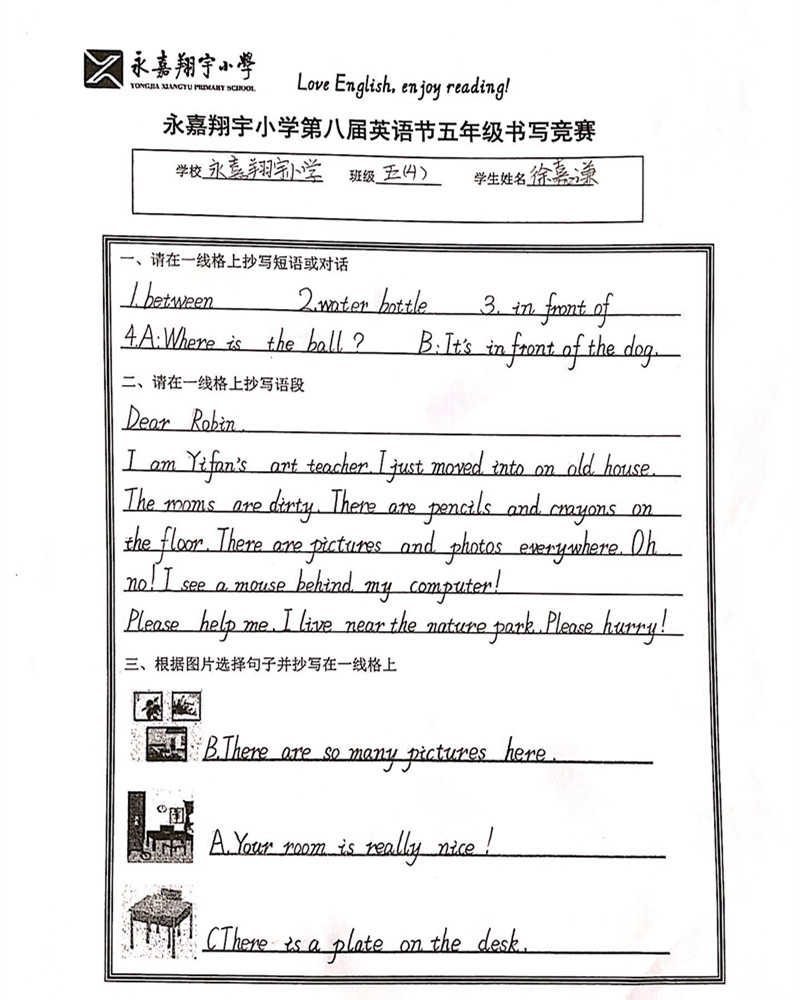 永嘉翔宇小學
YONGJIA XIANGYU PRIMARY SCHOOL
Love English, enjoy reading!
永嘉翔宇小学第八届英语节五年级书写竞赛
学校 永嘉翔宇小学 班级 五(4) 学生姓名 徐嘉谦
一、请在一线格上抄写短语或对话
1.between 2.water bottle 3. in front of
4.A:Where is the ball? B:It's in front of the dog.
二、请在一线格上抄写语段
Dear Robin.
I am Yifan's art teacher. I just moved into on old house.
The moms are dirty. There are pencils and crayons on
the floor. There are pictures and photos everywhere. Oh
no! I see a mouse behind my computer!
Please help me. I live near the nature park. Please hurry!
三、根据图片选择句子并抄写在一线格上
B.There are so many pictures here.
A.Your room is really nice!
CThere is a plate on the desk.